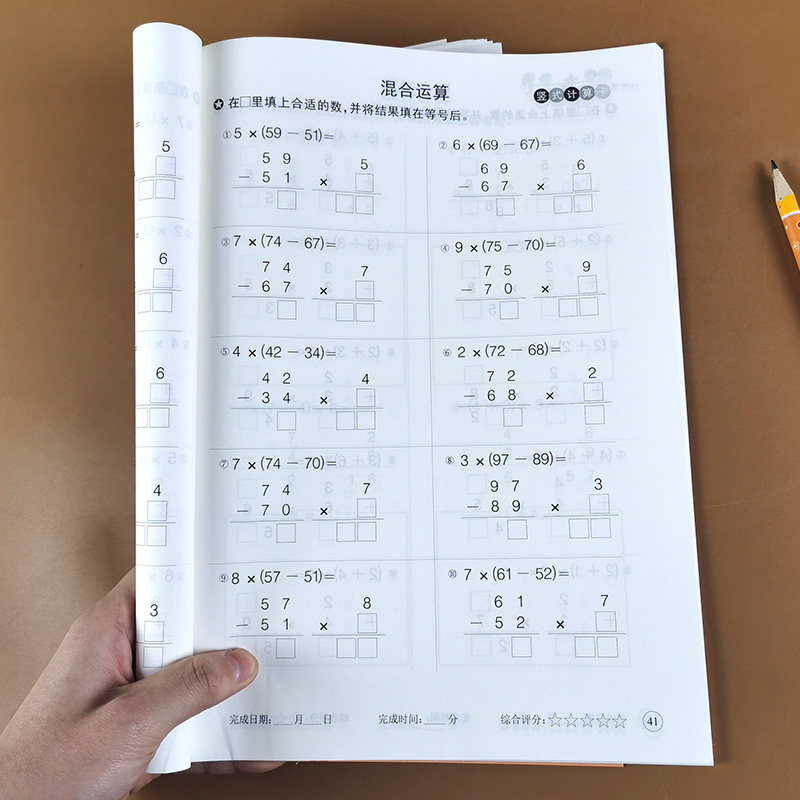 混合运算
竖式计算卡
在□里填上合适的数，并将结果填在等号后。
① 5 × (59 − 51)=
5 9
− 5 1
5
× □
□
□□
② 6 × (69 − 67)=
6 9
− 6 7
6
× □
□
□□
③ 7 × (74 − 67)=
7 4
− 6 7
7
× □
□
□□
④ 9 × (75 − 70)=
7 5
− 7 0
9
× □
□
□□
⑤ 4 × (42 − 34)=
4 2
− 3 4
4
× □
□
□□
⑥ 2 × (72 − 68)=
7 2
− 6 8
2
× □
□
□
⑦ 7 × (74 − 70)=
7 4
− 7 0
7
× □
□
□□
⑧ 3 × (97 − 89)=
9 7
− 8 9
3
× □
□
□□
⑨ 8 × (57 − 51)=
5 7
− 5 1
8
× □
□
□□
⑩ 7 × (61 − 52)=
6 1
− 5 2
7
× □
□
□□
5
6
6
4
3
完成日期：___月___日 完成时间：___分 综合评分：☆☆☆☆☆
41